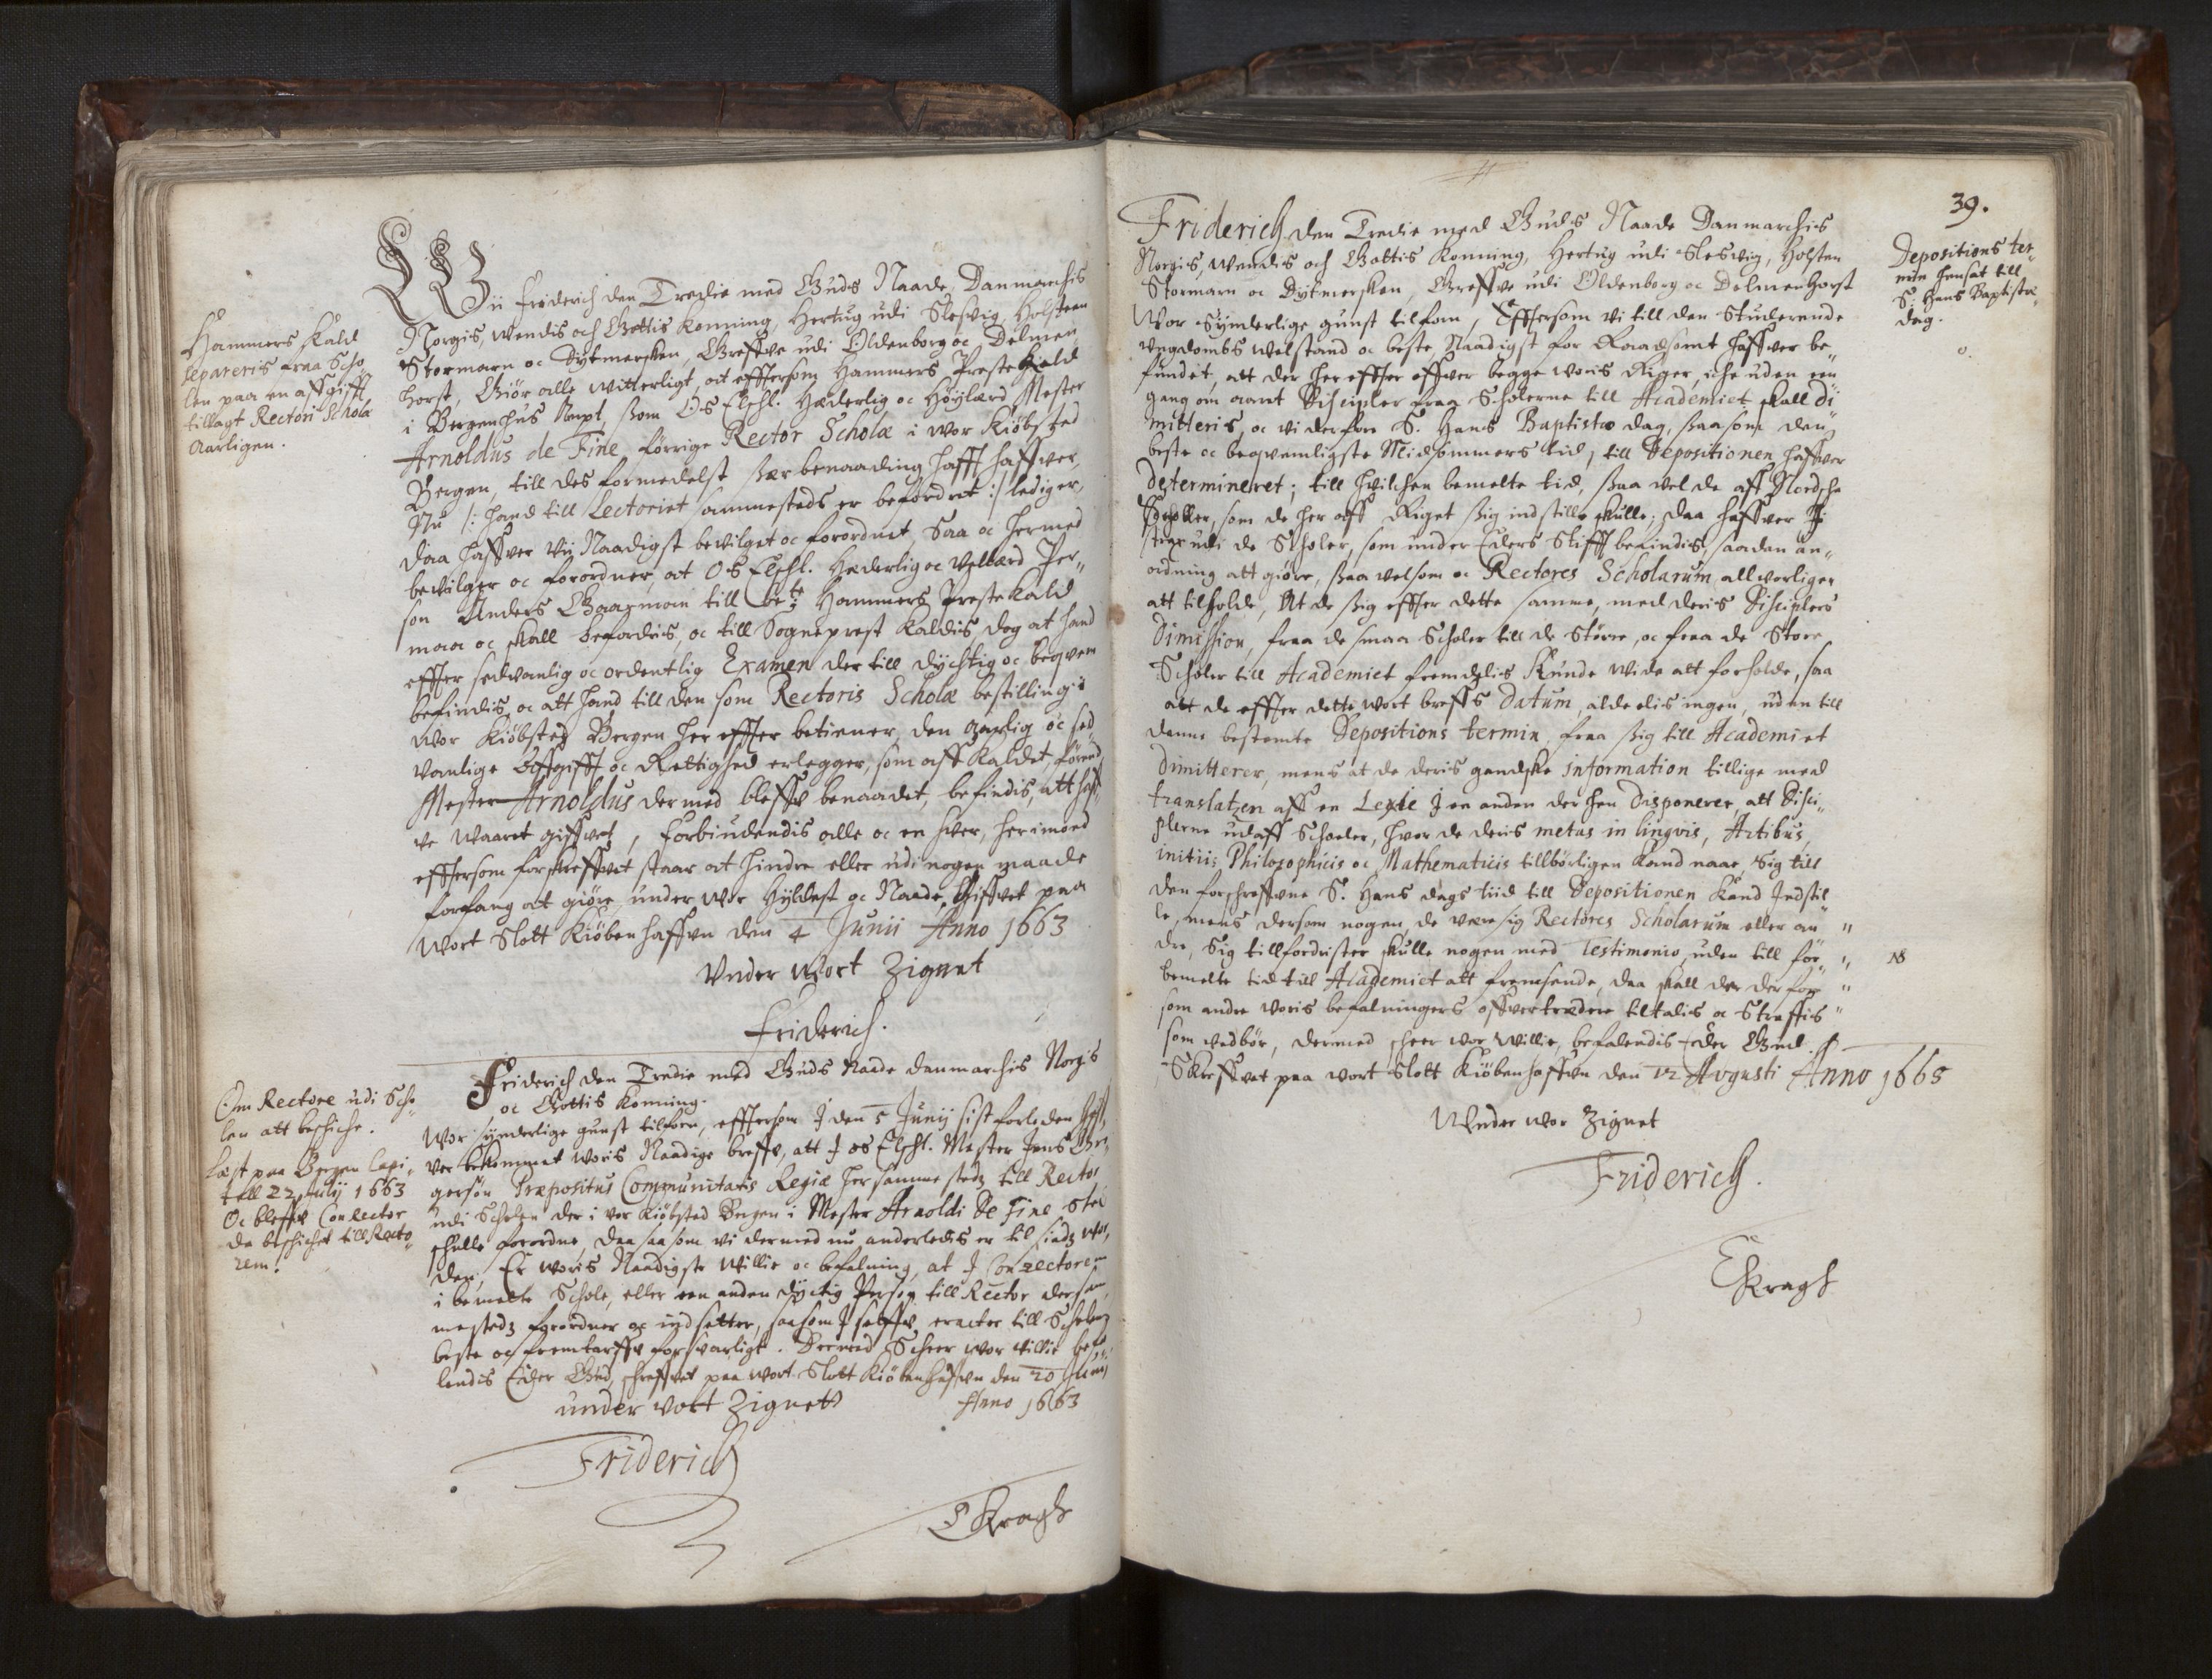 Hammers Kald
separeris fraa Scho
len paa en affgifft
tillagt Rectori Scholæ
Aarligen.
Wii Friderich den Tredie med Guds Naade, Danmarchis
Norgis, Wendis och Gottis Konning, Hertug udi Slesvig, Holsteen
Stormarn oc Dytmersken, Greffve udi Oldenborg oc Delmen
horst, Giör alle witterligt, at efftersom Hammers Preste Kald
i Bergenhus Ampt, som Os Elschl. Hæderlig oc Höylærd Mester
Arnoldus de Fine, förrige Rector Scholæ i wor Kiöbsted
Bergen, till des formedelst sær benaading hafft haffver,
Nu /: hand till Lectoriet sammesteds er befordret :/ lediger,
Daa haffver Vii Naadigst bevilget oc forordnet, Saa oc hermed
bevilger oc forordner, at Os Elschl. Hæderlig oc Vellærd Per„
son Anders Gaarman till bete Hammers Preste Kald
maa oc skall befordris, oc till Sogneprest Kaldis, dog at hand
effter sedvanlig oc ordentlig Examen der till dychtig oc beqvem
befindis, oc att hand till den som Rectoris Scholæ bestilling i
Wor Kiöbsted Bergen her effter betiener, den aarlig oc sed„
vanlige Affgifft oc Rettighed erlegger, som aff Kaldet, förend
Mester Arnoldus dermed bleffv benaadet, befindis, att haff„
ve Waaret giffvet, Forbiudendis alle oc en hver, herimod
efftersom forskreffvet staar at hindre eller udi nogen maade
forfang at giöre, under Wor Hyldest oc Naade, Giffvet paa
Wort Slott Kiöbenhaffvn den 4 Junii Anno 1663
Vnder Wort Zignet
Friderich.
Om Rectore udi Scho„
len att beschiche.
Læst paa Bergen Capi„
tell 22 July 1663
Oc bleffv ConRector
da beschichet till Recto„
rem.
Friderich den Tredie med Guds Naade Danmarchis Norgis
oc Gottis Konning.
Wor synderlige gunst tilforn, efftersom I den 5 Junij sist forleden haff„
ver bekommet Woris Naadige breffv, att I os Elschl. Mester Jens Bir„
gersön Præpositus Communitatis Regiæ her sammestedz till Rector
udi Scholen der i vor Kiöbsted Bergen i Mester Arnoldi De Fine sted
schulle forordne, Daa saasom vi dermed nu anderledis er til sindz wor„
den, Er Woris Naadigste Willie oc befalning, at I Conrectorem
i bemelte Schole, eller een anden dyctig Person till Rector der sam„
mestedz forordner oc indsetter, saasom I selffv eracter till Scholens
beste oc fremtarff forsvarligt. Dermed Scheer wor villie befa„
lendis Eder Gud, schreffvet paa Wort Slott Kiöbenhaffvn den 20 Junij
under vort Zignett Anno 1663
Friderich
E Kragh
39.
Depositions ter„
min hensat till
S. Hans Baptistæ
dag.
Friderich den Tredie med Guds Naade Danmarchis
Norgis, Wendis och Gottis Konning, Hertug udi Slesvig, Holsten
Stormarn oc Dytmersken, Greffve udi Oldenborg oc Delmenhorst
Wor Synderlige gunst tilforn, Efftersom vi till den Studerende
Vngdombs Welstand oc beste, Naadigst for Raadsomt haffver be„
fundet, att der her effter offver begge Woris Riger, iche uden een
gang om aaret Discipler fraa Scholerne till Academiet skall di
mitteris, oc vi derfore S. Hans Baptistæ dag, saasom den
beste oc beqvemligste Midsommers tid, till Depositionen haffver
Determineret; till hvilchen bemelte tid, saa vel de aff Nordsche
Scholer, som de her aff Riget sig indstille skulle; Daa haffver I
strax udi de Scholer, som under Eders Stifft befindis, saadan an„
ordning att giöre, saa velsom oc Rectores Scholarum, allvorligen
att tilholde, At de sig effter dette samme, med deris Disciplers
Dimission, fraa de smaa Scholer till de Större, oc fraa de Store
Scholer till Academiet fremdelis Kunde vide att forholde, saa
att de effter dette Wort breffs Datum, aldeelis ingen, uden till
denne bestemte Depositions termin fraa sig till Academiet
dimitterer, mens at de deris gandske information tillige med
translatzen aff en Lexie I en anden der hen disponerer, att Disci„
plerne udaff Scholer, hvor de deris metas in lingvis, Artibus,
initiis Philosophicis oc Mathematicis tillbörligen Kand naae, Sig till
den forschreffvne S. Hans dags tiid till Depositionen Kand Indstil
le, mens dersom nogen, de være sig Rectores Scholarum eller an "
dre, Sig tillfordrister skulle nogen med Testimonio, uden till for„ "
NB
bemelte tid till Academiet att fremsende, daa skall der derfor "
som andre Woris befalningers offvertrædere tiltalis oc Straffis "
som vedbör, dermed scheer wor Willie, befalendis Eder Gud.
Skreffvet paa vort Slott Kiöbenhaffvn den 12 Avgusti Anno 1665
Wnder wor Zignet
Friderich.
E Kragh